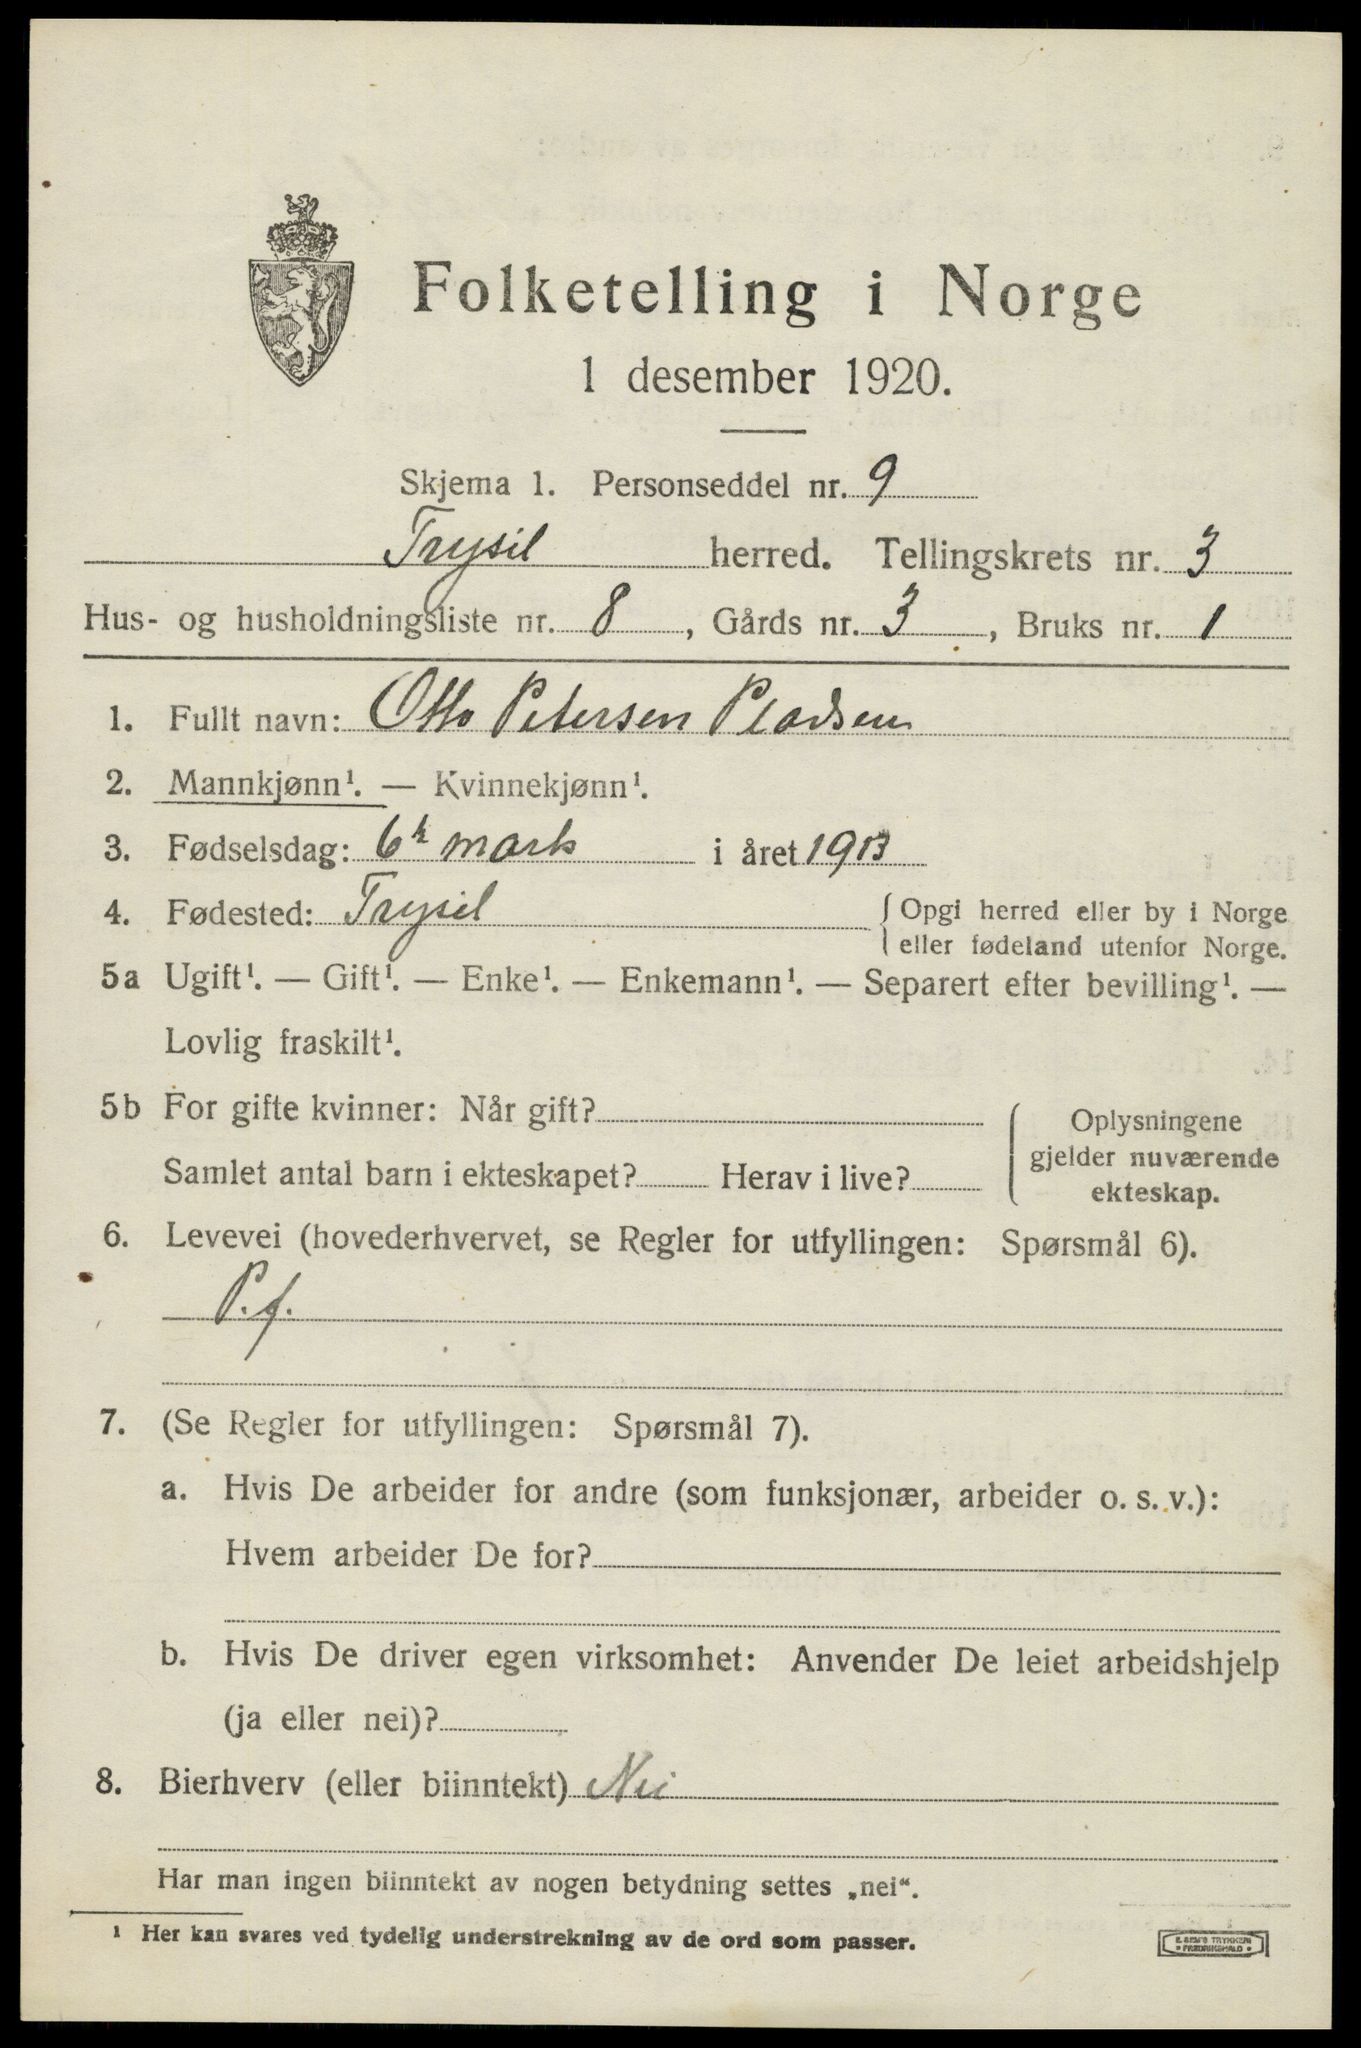 Folketelling i Norge
1 desember 1920.
Skjema 1. Personseddel nr. 9
Trysil herred. Tellingskrets nr. 3
Hus- og husholdningsliste nr. 8, Gårds nr. 3, Bruks nr. 1
1. Fullt navn: Otto Petersen Pladsen
2. Mannkjønn¹. — Kvinnekjønn¹.
3. Fødselsdag: 6te mars i året 1913
4. Fødested: Trysil { Opgi herred eller by i Norge
eller fødeland utenfor Norge.
5a Ugift¹. — Gift¹. — Enke¹. — Enkemann¹. — Separert efter bevilling¹. —
Lovlig fraskilt¹.
5b For gifte kvinner: Når gift?
Samlet antal barn i ekteskapet? Herav i live?
{ Oplysningene
gjelder nuværende
ekteskap.
6. Levevei (hovederhvervet, se Regler for utfyllingen: Spørsmål 6).
P.f.
7. (Se Regler for utfyllingen: Spørsmål 7).
a. Hvis De arbeider for andre (som funksjonær, arbeider o. s. v.):
Hvem arbeider De for?
b. Hvis De driver egen virksomhet: Anvender De leiet arbeidshjelp
(ja eller nei)?
8. Bierhverv (eller biinntekt) Nei
Har man ingen biinntekt av nogen betydning settes „nei“.
¹ Her kan svares ved tydelig understrekning av de ord som passer.
E. SEM'S TRYKKERI
• FREDRIKSHALD •